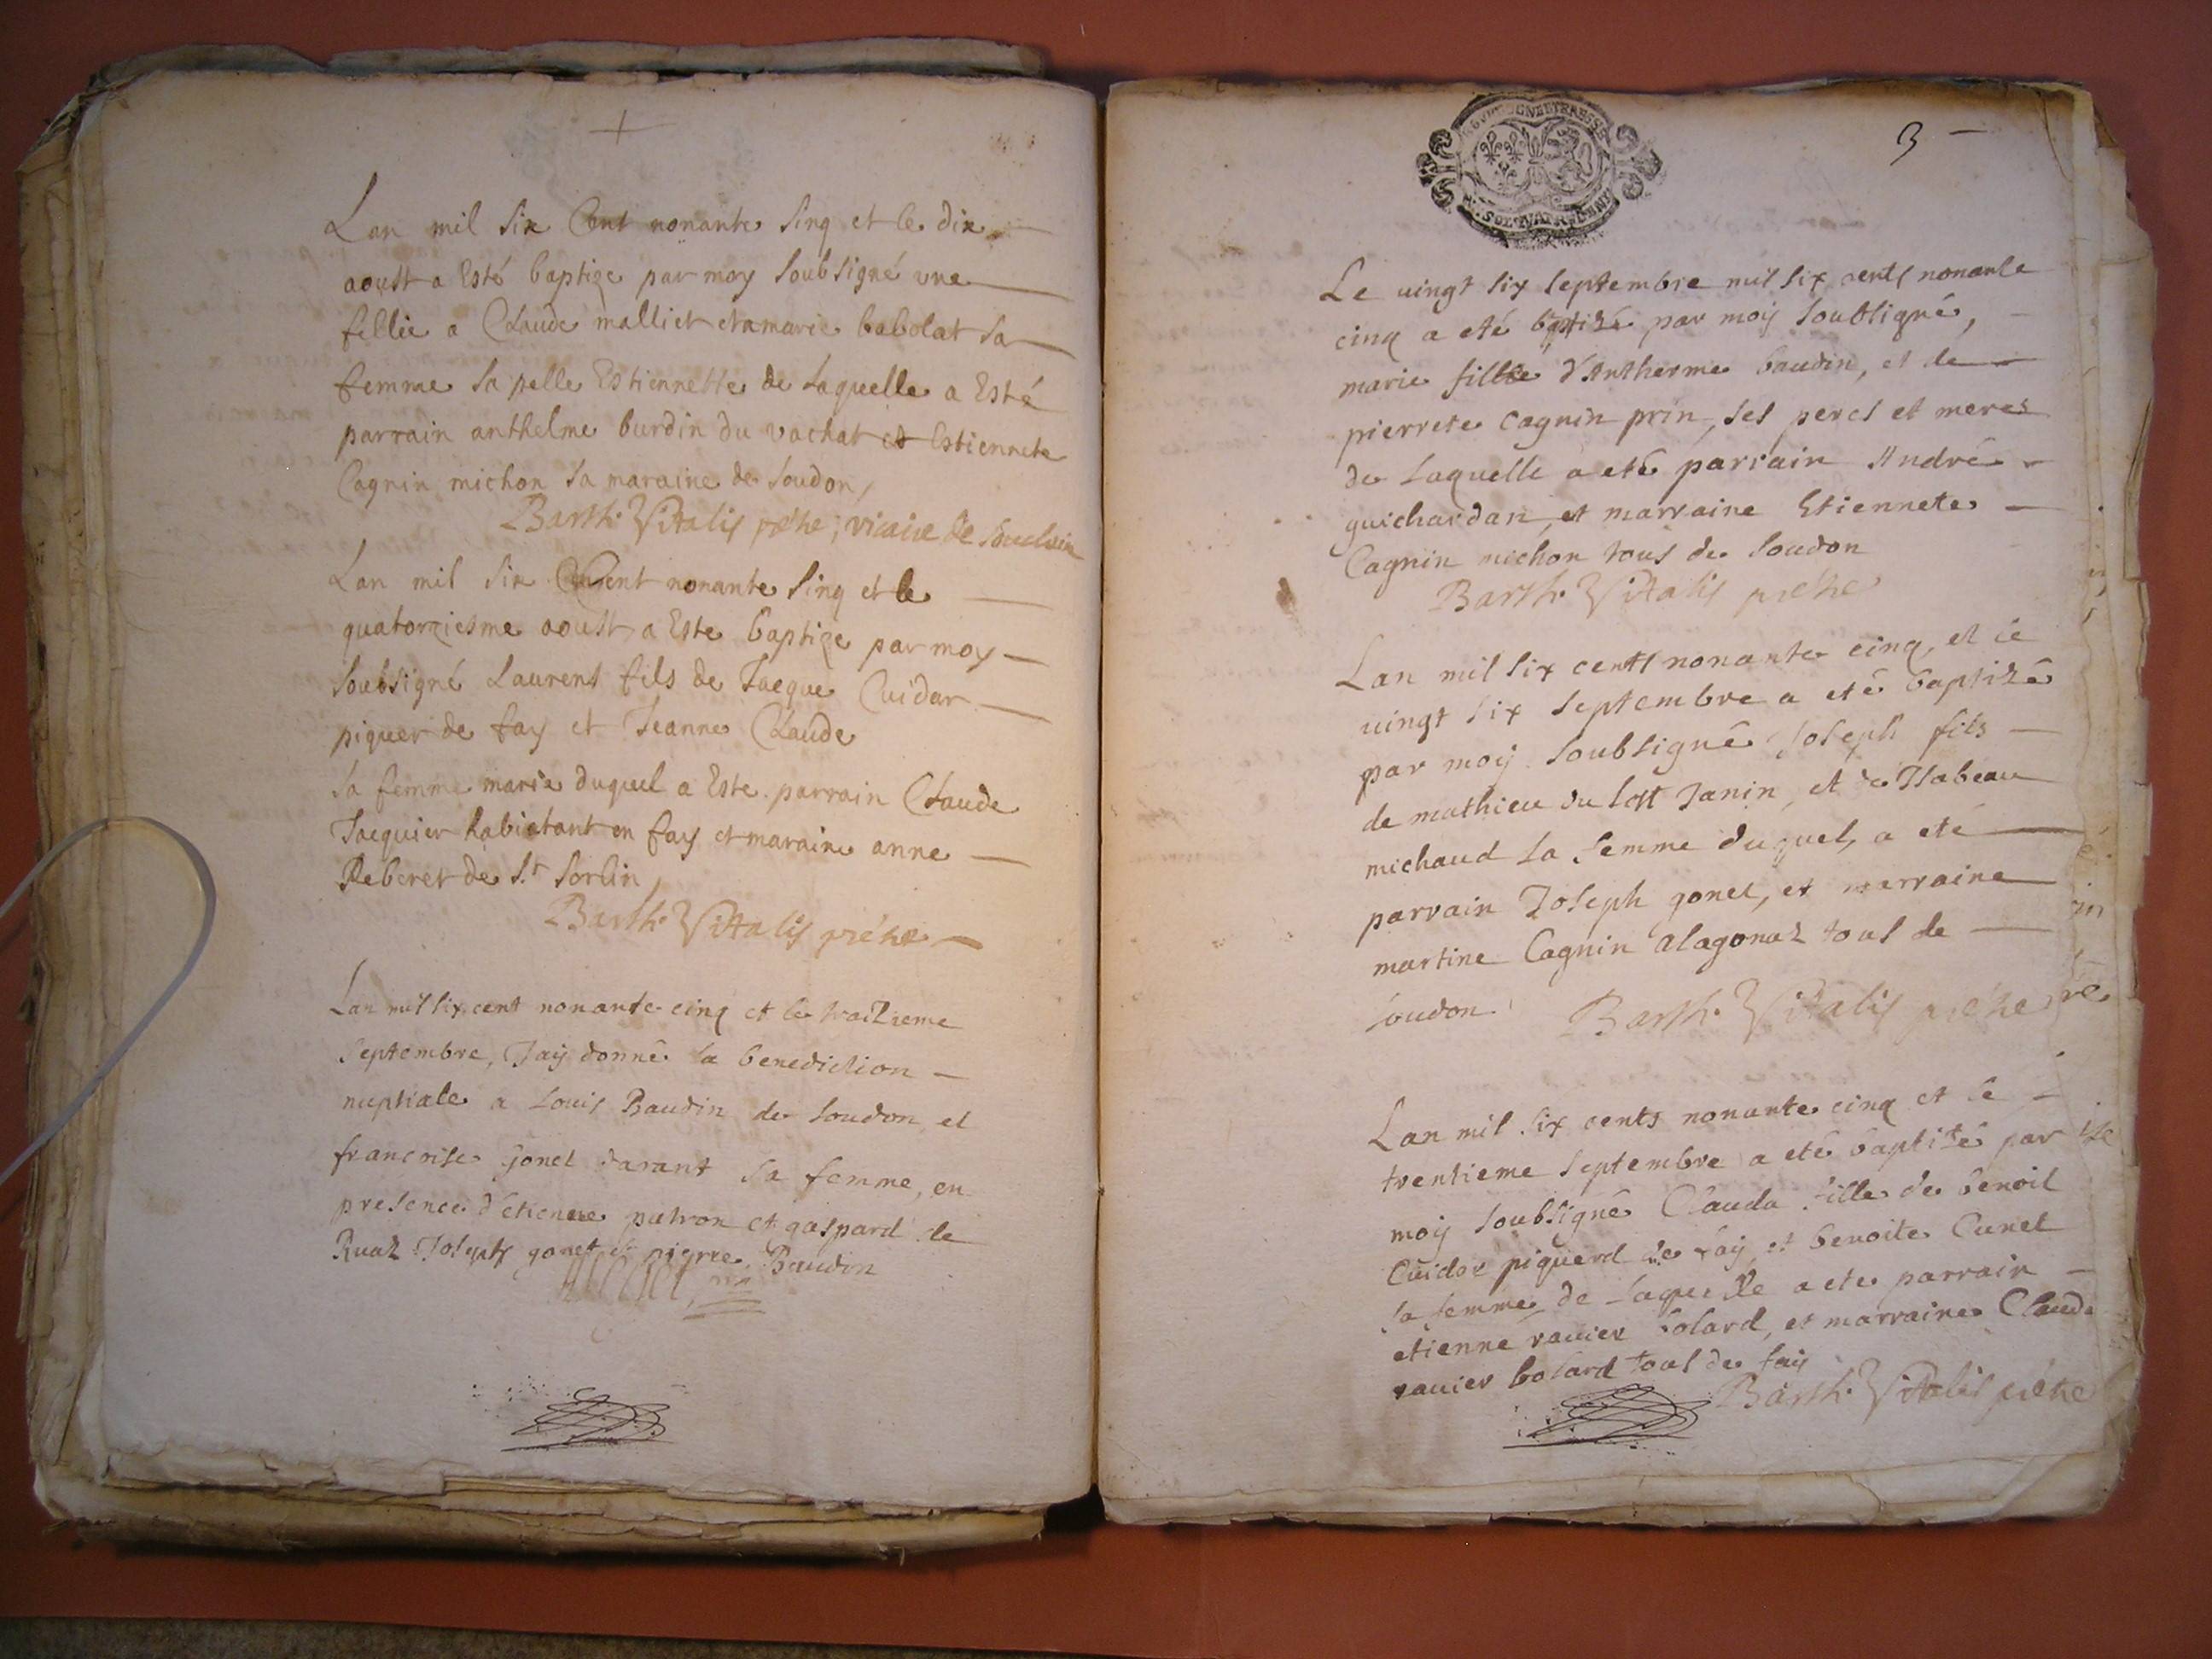 Lan mil Six Cent nonante Sinq et le dix
aoust a Esté baptize par moy Soubsigné vne
fillie a Claude malliet et a marie babolat sa
femme sa pelle Estiennette de Laquelle a Esté
parrain anthelme burdin du vachat et Estiennete
Cagnin michon sa maraine de Soudon,
Barth. Vitalis prétre, vicaire de
Lan mil Six Cent nonante Sinq et le
quatorziesme aoust a Este baptize par moy
Soubsigné Laurens fils de Jacque Cuidar
piguer de fay et Jeanne Claude
sa femme marie duquel a Este parrain Claude
Jacquier habiatant en fay et maraine anne
Reberet de St Sorlin,
Barth. Vitalis prétre
Lan mil six cent nonante cinq et le traizieme
Septembre, Jaÿ donné la benediction
nuptiale a Louis Baudin de Soudon et
francoise gonet darant sa femme, en
presence d'etienne patron et gaspard de
Ruaz Joseph gonet et pierre Baudin
3
Le vingt six Septembre mil six cents nonante
cinq a eté baptizé par moÿ Soubsigné,
marie fille d'Antherme baudin, et de
pierrete Cagnin prin, ses peres et meres
de Laquelle a eté parrain André
guichardan, et marraine Etiennete
Cagnin michon tous de Soudon
Barth. Vitalis prétre
Lan mil six cents nonante cinq, et le
vingt six Septembre a eté baptizé
par moÿ Soubsigné Joseph fils
de mathieu du Janin, et de Isabeau
michaud sa femme duquel, a eté
parrain Joseph gonet, et marraine
martine Cagnin alagonaz tous de
Soudon. Barth. Vitalis prétre
Lan mil six cents nonante cinq et le
trentieme Septembre a eté baptisé par
moÿ Soubsigné Clauda fille de benoit
Cuidor piguerd de faÿ, et benoite Cunet
sa femme de Laquelle a ete parrain
etienne ravier bolard, et marraine Claude
ravier bolard tous de faÿ
Barth. Vitalis prétre